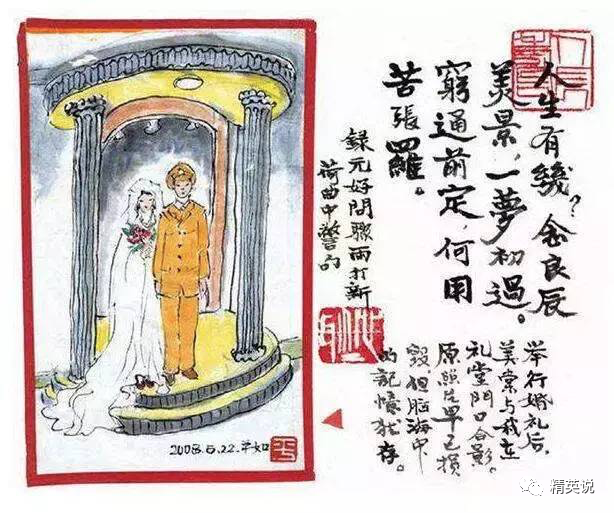 人生有幾？念良辰
美景，一夢初過。
窮通前定，何用
苦張羅。
錄元好問驟雨打新
荷曲中警句
举行婚礼后，
美棠与我在
礼堂門口合影。
原照片早已損
毁但脑海中
的記憶犹存。
2008.5.22.平如
精英说